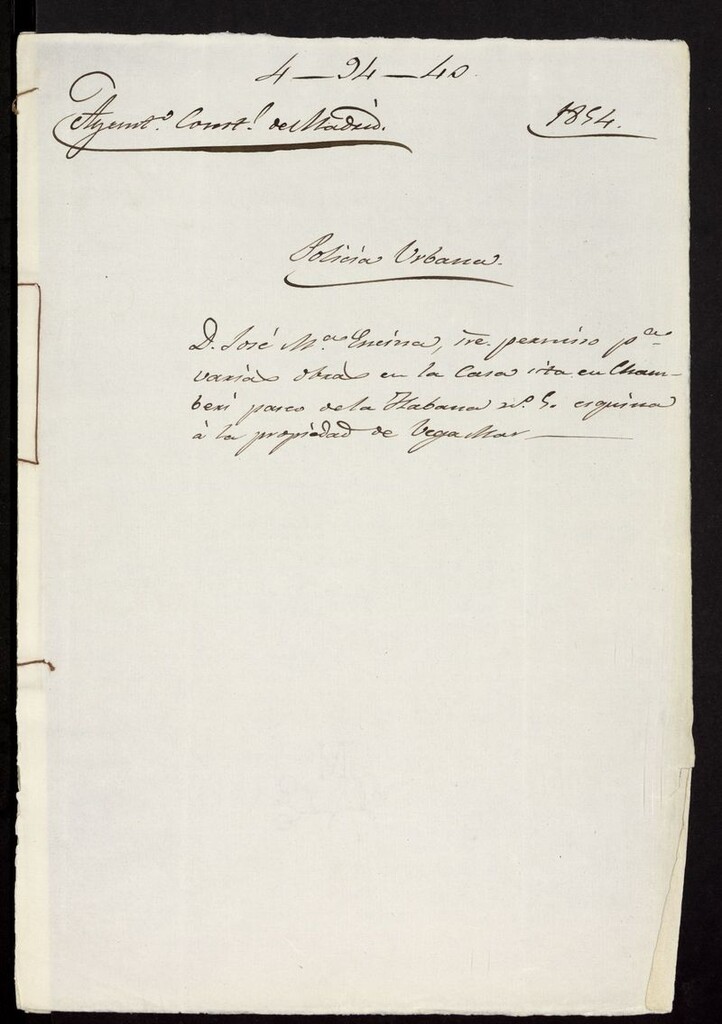 4-94-40.
Ayuntº. Constl. de Madrid.
1854.
Policía Urbana.
D. José Mª. Encina, sre. permiso pª
varias obras en la casa sita en Cham-
berí paseo de la Habana nº. 5. esquina
á la propiedad de Vega Mar